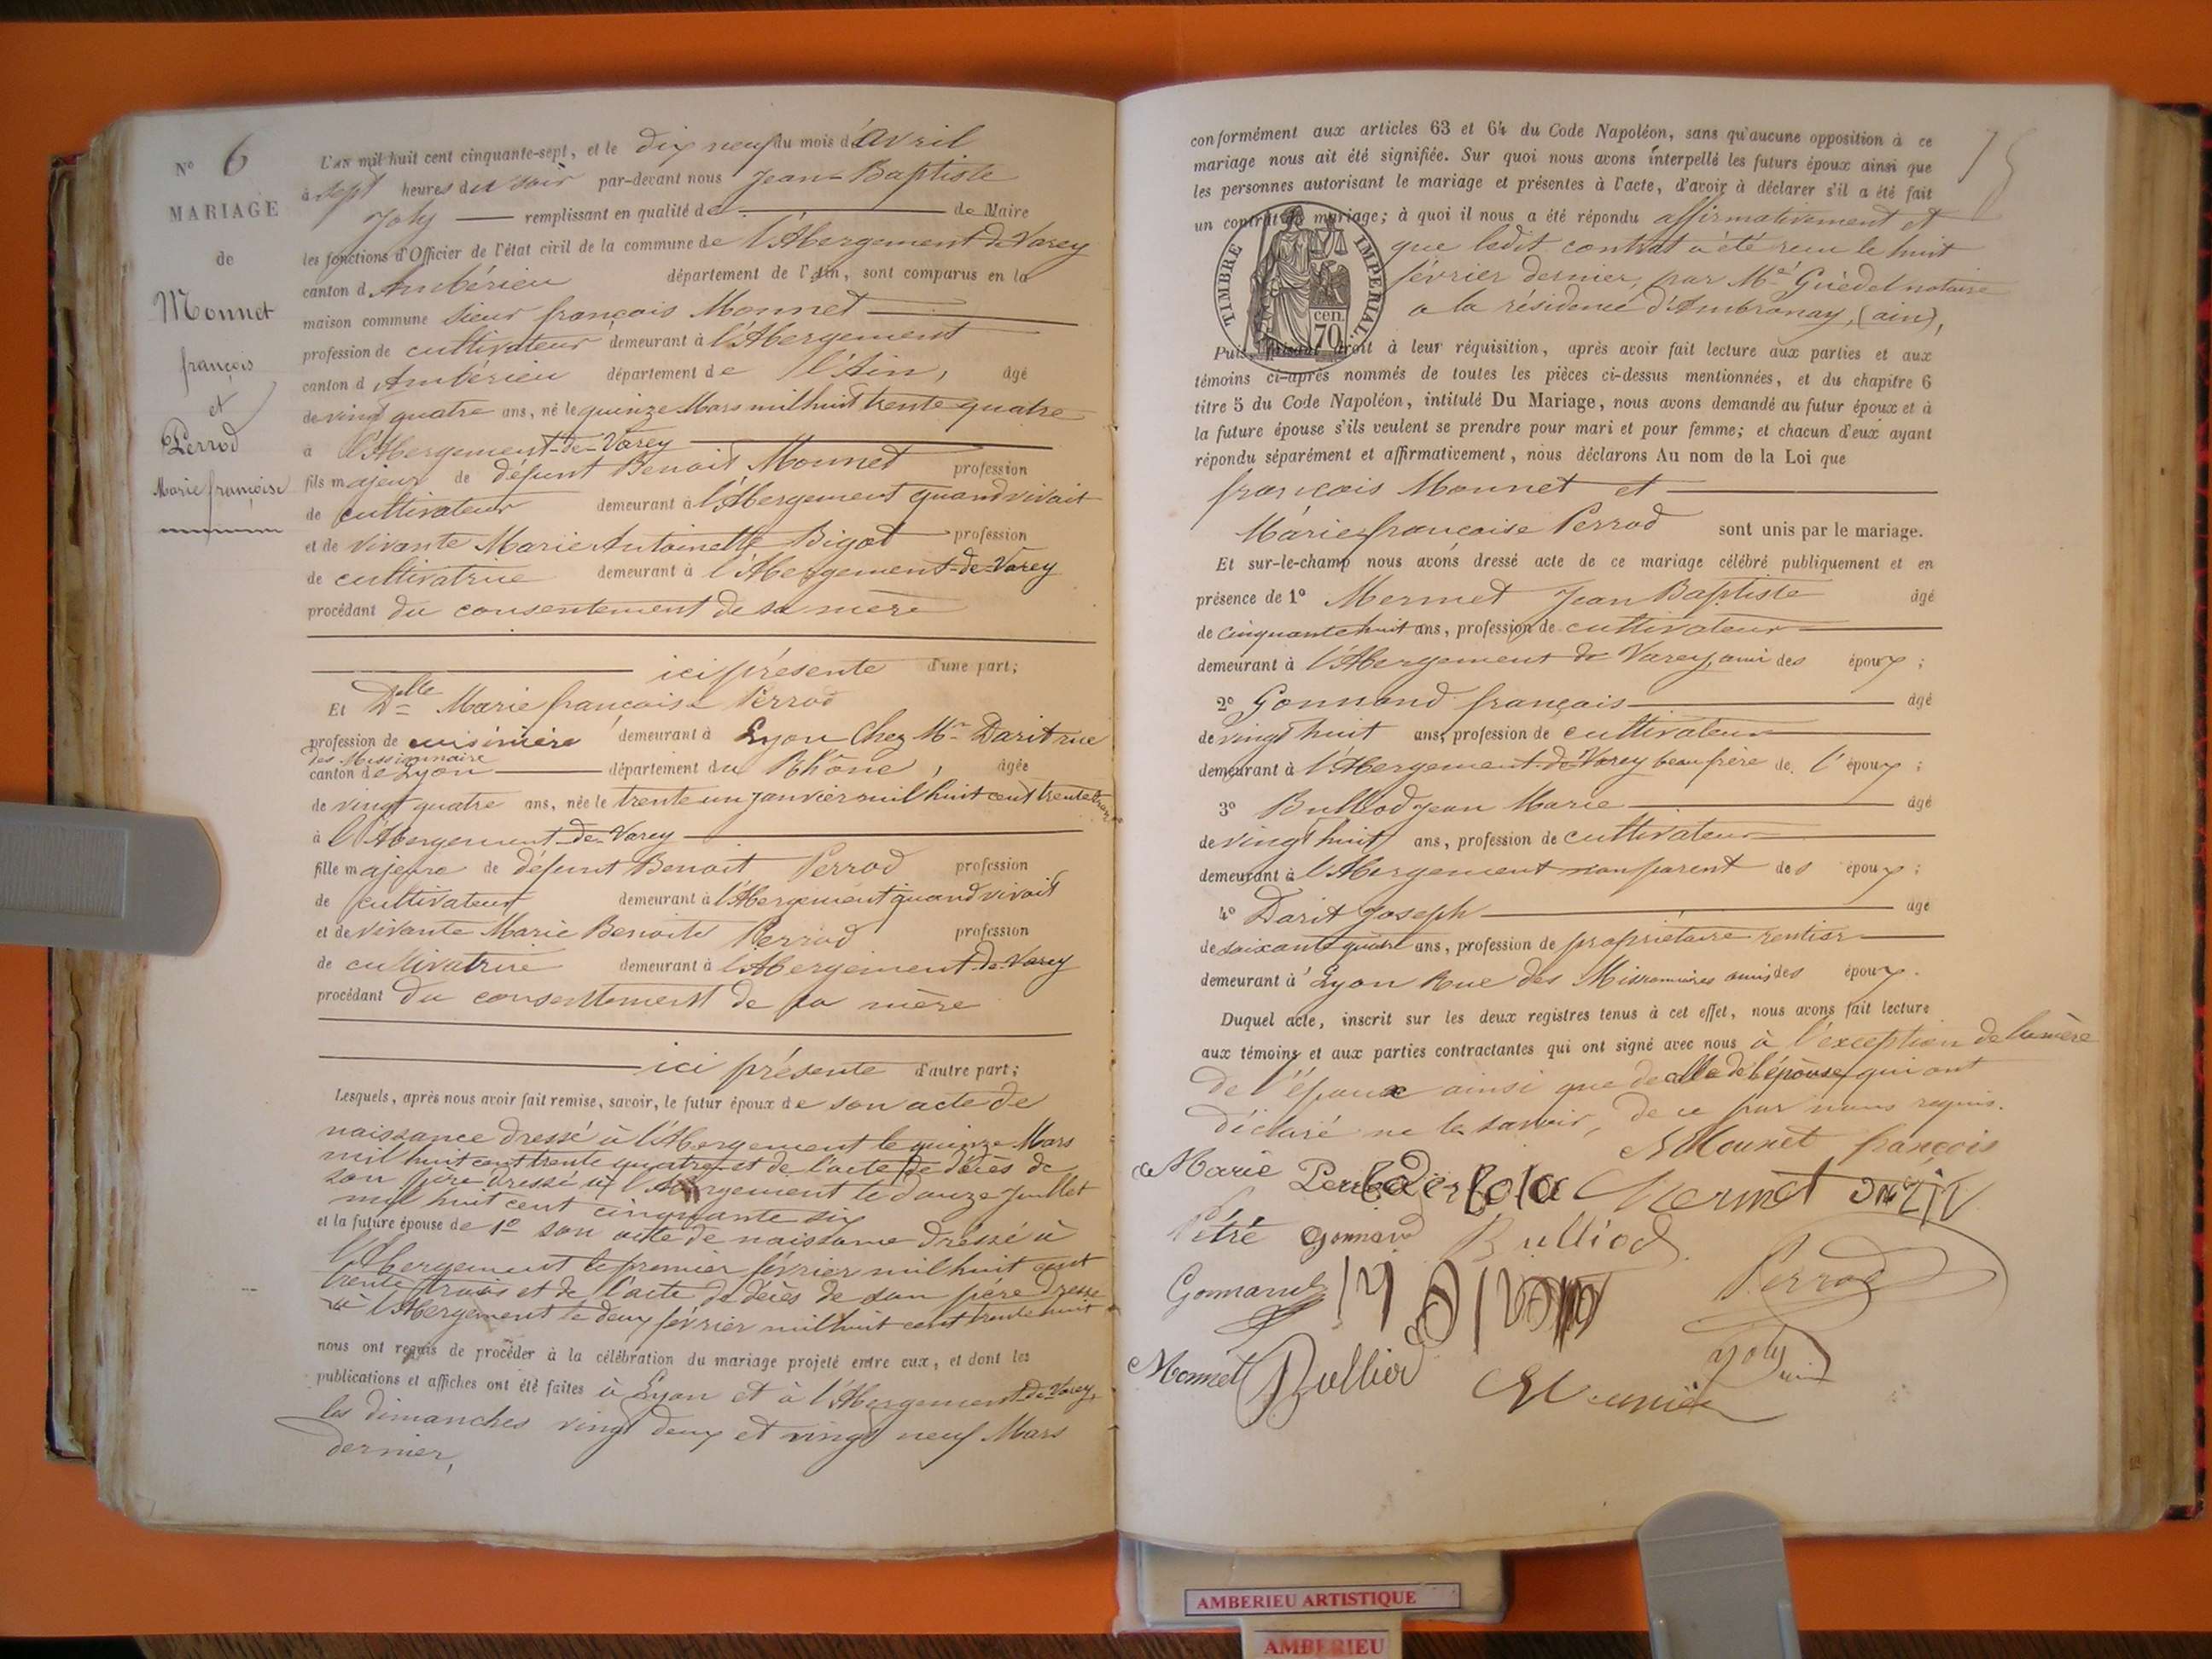 N° 6
MARIAGE
de
Monnet
françois
et
Perrod
Marie françoise
L'AN mil huit cent cinquante-sept, et le dix neuf du mois d'avril
à sept heures du soir par-devant nous Jean-Baptiste
Joly remplissant en qualité de de Maire
les fonctions d'Officier de l'état civil de la commune de l'Abergement-de-Varey
canton d'Ambérieu département de l'Ain, sont comparus en la
maison commune sieur françois Monnet
profession de cultivateur demeurant à l'Abergement
canton d'Ambérieu département de l'Ain, âgé
de vingt quatre ans, né le quinze Mars mil huit trente quatre
à l'Abergement-de-Varey
fils majeur de défunt Benoit Monnet profession
de cultivateur demeurant à l'Abergement quand vivait
et de vivante Marie Antoinette Bigot profession
de cultivatrice demeurant à l'Abergement-de-Varey
procédant du consentement de sa mère
ici présente d'une part;
Et Dlle Marie françoise Perrod
profession de cuisinière demeurant à Lyon chez Mr Darit rue
des Missionnaire
canton de Lyon département du Rhône, âgée
de vingt quatre ans, née le trente un janvier mil huit cent trente trois
à l'Abergement-de-Varey
fille majeure de défunt Benoit Perrod profession
de cultivateur demeurant à l'Abergement quand vivait
et de vivante Marie Benoite Perrod profession
de cultivatrice demeurant à l'Abergement-de-Varey
procédant du consentement de sa mère
ici présente d'autre part;
Lesquels, après nous avoir fait remise, savoir, le futur époux de son acte de
naissance dressé à l'Abergement le quinze Mars
mil huit cent trente quatre et de l'acte de décès de
son père dressé à l'Abergement le douze Juillet
mil huit cent cinquante six
et la future épouse de 1° son acte de naissance dressé à
l'Abergement le premier février mil huit cent
trente trois et de l'acte de décès de son père dressé
à l'Abergement le deux février mil huit cent trente huit
nous ont requis de procéder à la célébration du mariage projeté entre eux, et dont les
publications et affiches ont été faites à Lyon et à l'Abergement-de-Varey,
les dimanches vingt deux et vingt neuf Mars
dernier,
conformément aux articles 63 et 64 du Code Napoléon, sans qu'aucune opposition à ce
mariage nous ait été signifiée. Sur quoi nous avons interpellé les futurs époux ainsi que
les personnes autorisant le mariage et présentes à l'acte, d'avoir à déclarer s'il a été fait
un contrat de mariage; à quoi il nous a été répondu affirmativement et
que ledit contrat a été reçu le huit
février dernier, par Me Guédel notaire
a la résidence d'Ambronay, (ain),
TIMBRE IMPÉRIAL
70 cen.
Puis, faisant droit à leur réquisition, après avoir fait lecture aux parties et aux
témoins ci-après nommés de toutes les pièces ci-dessus mentionnées, et du chapitre 6
titre 5 du Code Napoléon, intitulé Du Mariage, nous avons demandé au futur époux et à
la future épouse s'ils veulent se prendre pour mari et pour femme; et chacun d'eux ayant
répondu séparément et affirmativement, nous déclarons Au nom de la Loi que
françois Monnet et
Marie françoise Perrod sont unis par le mariage.
Et sur-le-champ nous avons dressé acte de ce mariage célébré publiquement et en
présence de 1° Mermet Jean Baptiste âgé
de cinquante huit ans, profession de cultivateur
demeurant à l'Abergement de Varey, ami des époux;
2° Gonnand françois âgé
de vingt huit ans, profession de cultivateur
demeurant à l'Abergement-de-Varey beau frère de l'époux;
3° Bulliod jean Marie âgé
de vingt huit ans, profession de cultivateur
demeurant à l'Abergement non parent des époux;
4° Darit Joseph âgé
de soixante quatre ans, profession de propriétaire rentier
demeurant à Lyon Rue des Missionnaires amis des époux.
Duquel acte, inscrit sur les deux registres tenus à cet effet, nous avons fait lecture
aux témoins et aux parties contractantes qui ont signé avec nous à l'exception de la mère
de l'époux ainsi que de celle de l'épouse qui ont
déclaré ne le savoir, de ce par nous requis.
Monnet françois
Marie Mermet
Pitré Gonnand Bulliod
Gonnand Perrod
Joly
Monnet Bullier Meunier
AMBERIEU ARTISTIQUE
AMBERIEU